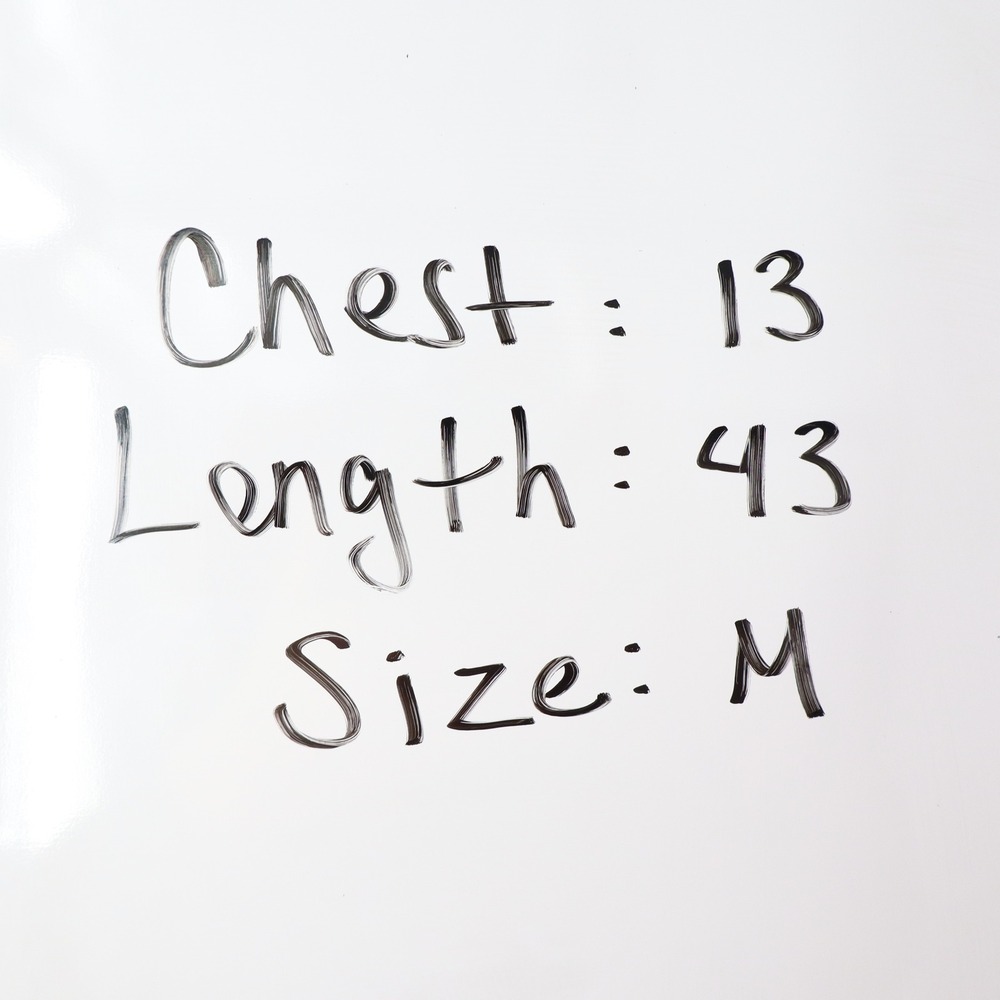 Chest: 13
Length: 43
Size: M